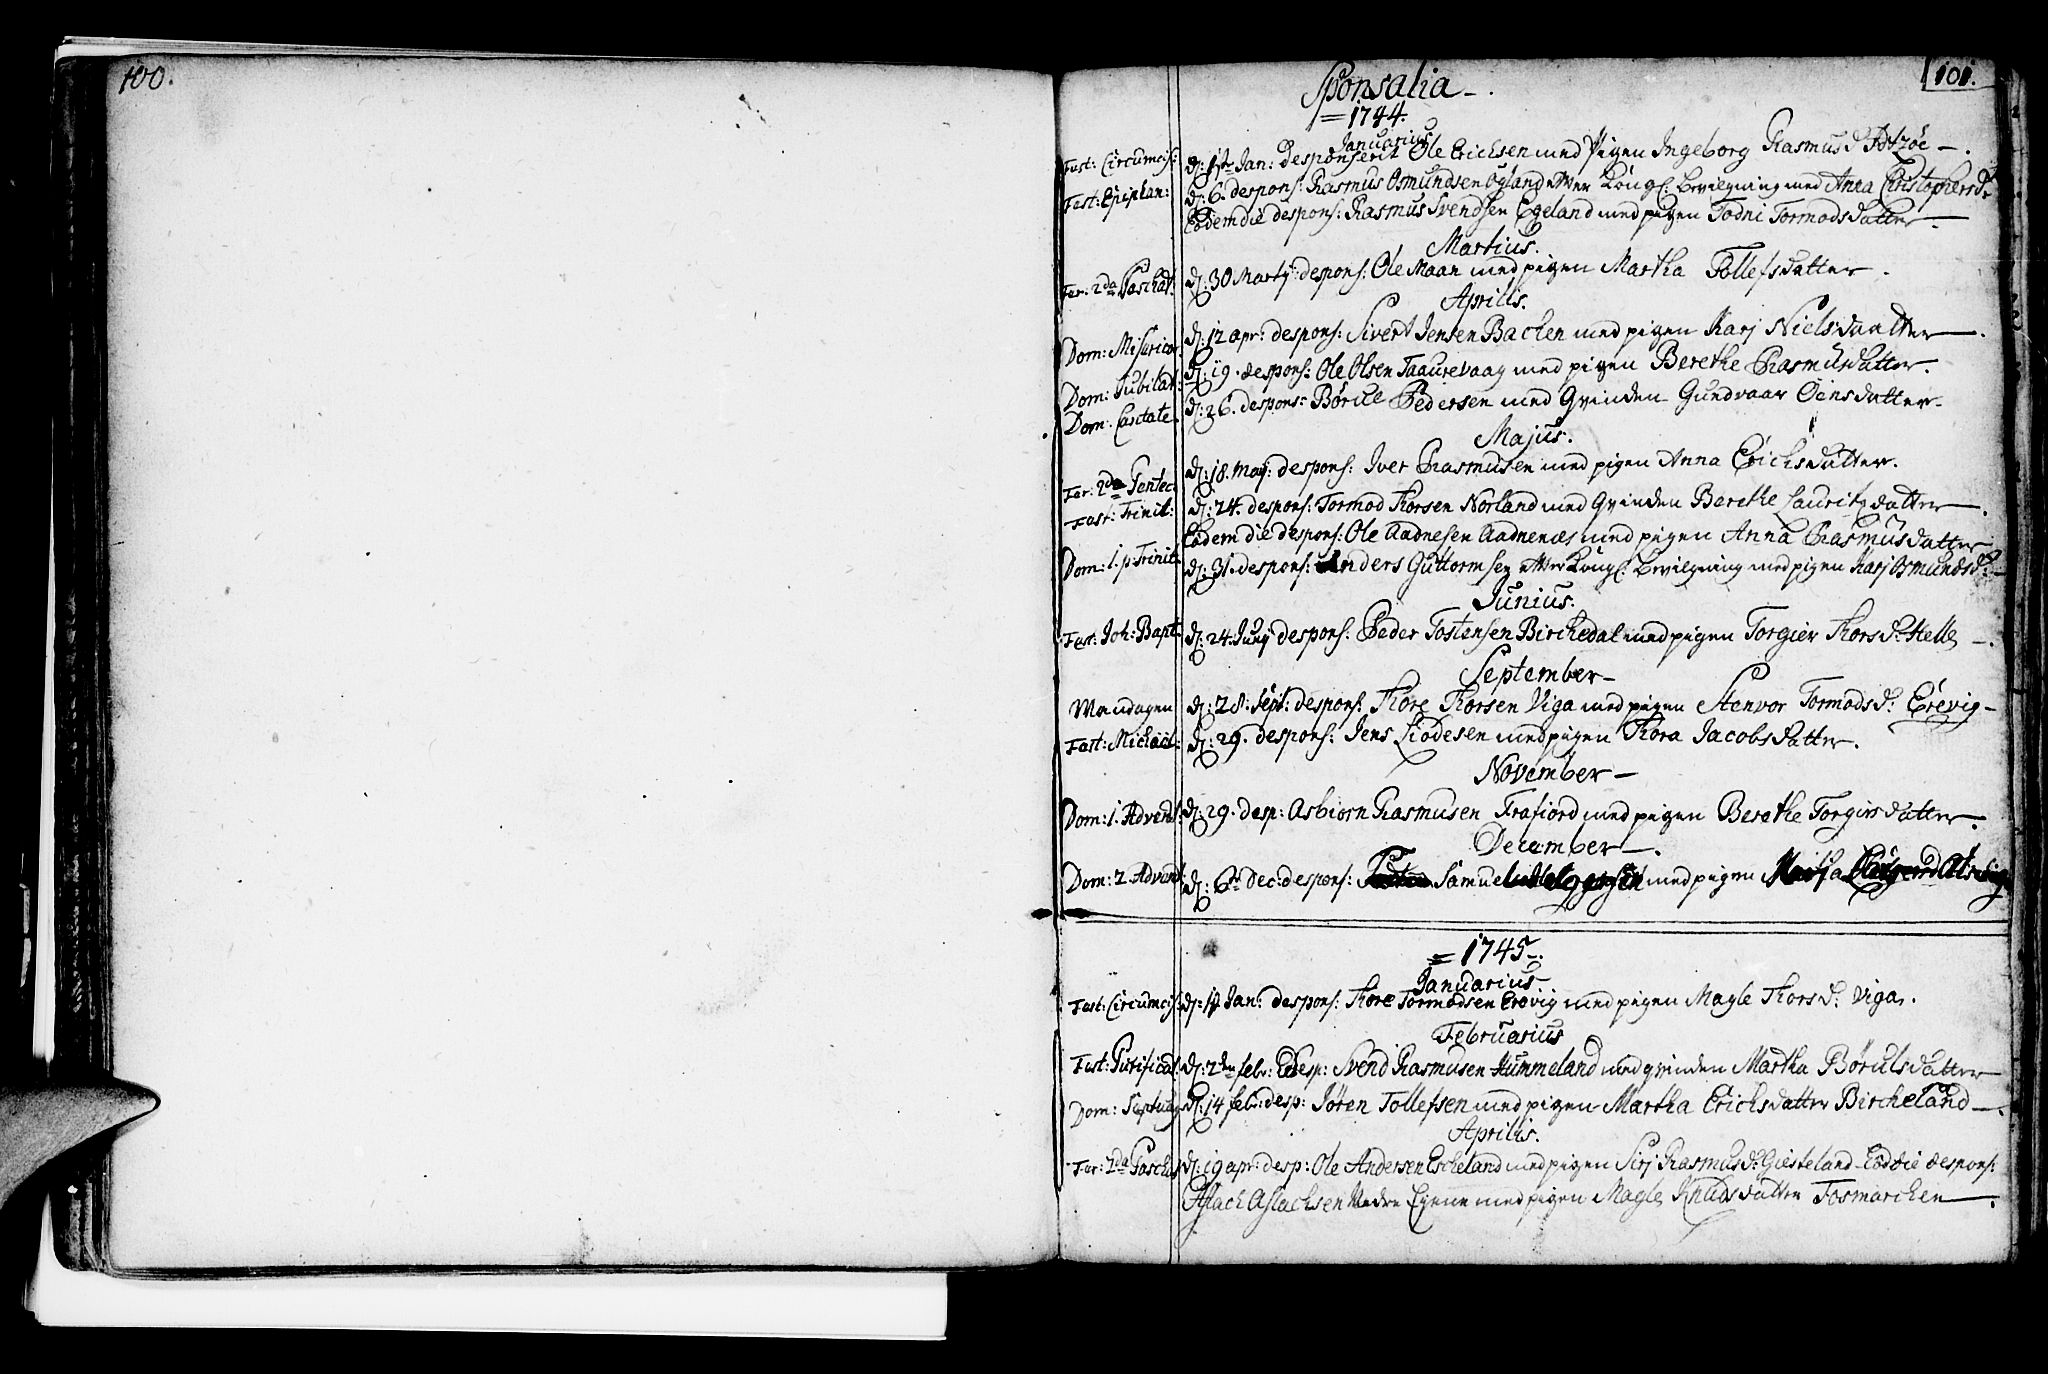 100.
101.
Sponsalia.
= 1744.
Januarius
Fest: Circumcis: d: 1ste Jan: desponserit Ole Erichsen med Pigen Ingeborg Rasmusd
Fest: Epiphan: d: 6. despons: Rasmus Osmundsen Øgland efter Kongl: bevilgning med Anna Christophersd:
Eodem die despons: Rasmus Svendsen Egeland med pigen Todni Tormodsdatter
Martius.
Fer: 2da Paschat: d: 30 Martij despons: Ole Maan med pigen Martha Tollefsdatter.
Aprilis.
Dom: Misericor: d: 12 apr: despons: Sivert Jensen Bachen med pigen Karj Nielsdaatter.
Dom: Jubilat: d: 19. despons: Ole Olsen Taaurevaag med pigen Berethe Rasmusdatter.
Dom: Cantate. d: 26. despons: Børille Pedersen med Qvinden Gundvaar Oensdatter
Majus.
Fer: 2da Pentec: d: 18. maj: despons: Iver Rasmusen med pigen Anna Erichsdatter.
Fest: Trinit: d: 24. despons: Tormod Thorsen Norland med Qvinden Berethe Lauritzdatter.
Eodem die despons: Ole Aadnesen Aadnenæs med pigen Anna Rasmusdatter
Dom: 1. p: Trinit: d: 31. despons: Anders Guttormsen efter Kongl: bevilgning med pigen Karj Osmundsd:
Junius.
Fest: Joh: Bapt. d: 24. Junj despons: Peder Tostensen Birchedal med pigen Torgier Thorsd: Helle
September
Mandagen d: 28. sept: despons: Thore Thorsen Viga med pigen Stenvor Tormodsd: Erevig
Fest: Michael: d: 29. despons: Jens Liodesen med pigen Thora Jacobsdatter.
November
Dom: 1. Advent: d: 29. desp: Asbiorn Rasmusen Frafiord med pigen Berethe Torgiersdatter.
December
Dom: 2 Advent: d: 6te dec: despons: Samuel Helgesen med pigen
= 1745.
Januarius
Fest: Circumcis: d: 1 Jan: despons: Thore Tormodsen Erevig med pigen Magle Thorsd: Viga.
Februarius
Fest: Purificat: d: 2den febr: desp: Svend Rasmusen Hummeland med qvinden Martha Børulsdatter
Dom: Septuag: d: 14 febr: desp: Jøren Tollefsen med pigen Martha Erichsdatter Bircheland
Aprilis.
Fer: 2da Paschat d: 19 apr: desp: Ole Andersen Escheland med pigen Sirj Rasmusd: Giesteland Eod die despons:
Aslach Aslachsen Nedre Egene med pigen Magle Knudsdatter Fosmarchen.